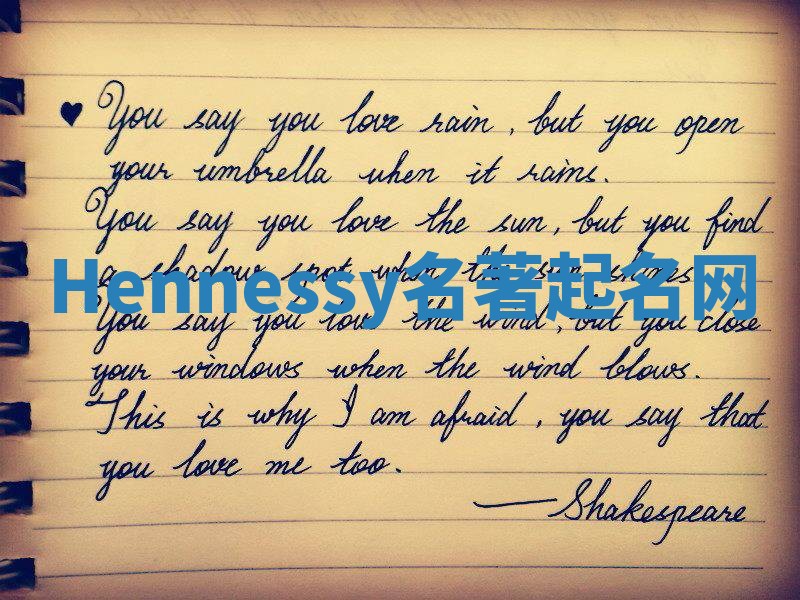 You say you love rain, but you open
your umbrella when it rains.
You say you love the sun, but you find
a shadow spot when the sun shines
Hennessy名著起名网
You say you love the wind, but you close
your windows when the wind blows.
This is why I am afraid, you say that
you love me too.
—Shakespeare